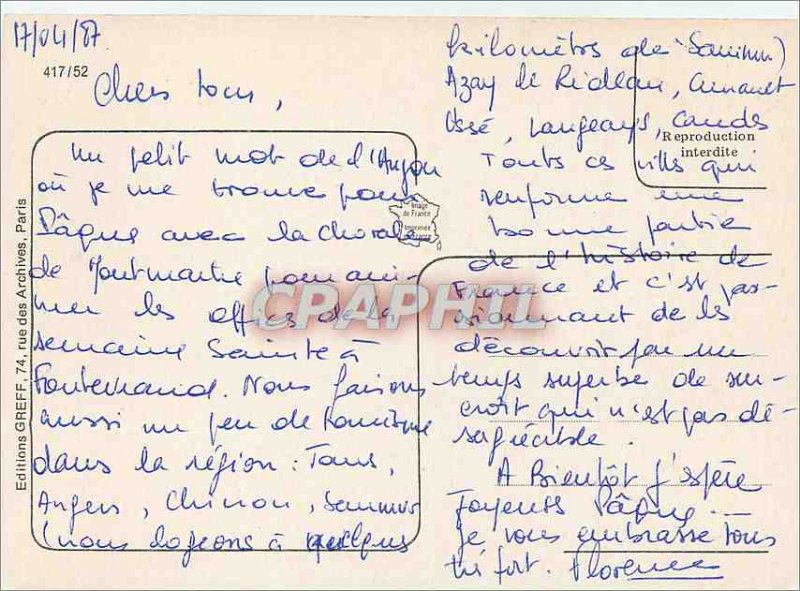 17/04/87
417/52
Chers tous,
Un petit mot de l'Anjou
où je me trouve pour
Pâques avec la chorale
de Montmartre pour ani-
mer les offices de la
semaine Sainte à
Fontevraud. Nous faisons
aussi un peu de tourisme
dans la région : Tours,
Angers, Chinon, Saumur
(nous logeons à quelques
kilomètres de Saumur)
Azay le Rideau,
Ussé, Langeais, Candes
Toutes ces villes qui
renferme une
bonne partie
de l'histoire de
France et c'est pas-
sionnant de les
découvrir par un
temps superbe de sur-
croît qui n'est pas dé-
sagréable.
A Bientôt j'espère
Joyeuses Pâques.
Je vous embrasse tous
très fort. Florence
Reproduction
interdite
Image
de France
Imprimée
en France
Editions GREFF, 74, rue des Archives, Paris
CPAPHIL